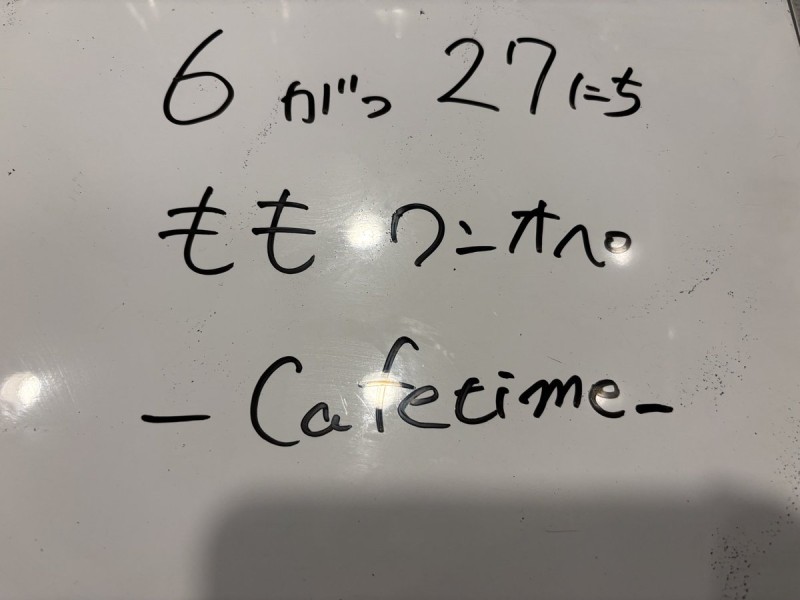 6がつ27にち
もも ワンオペ
- Cafetime -